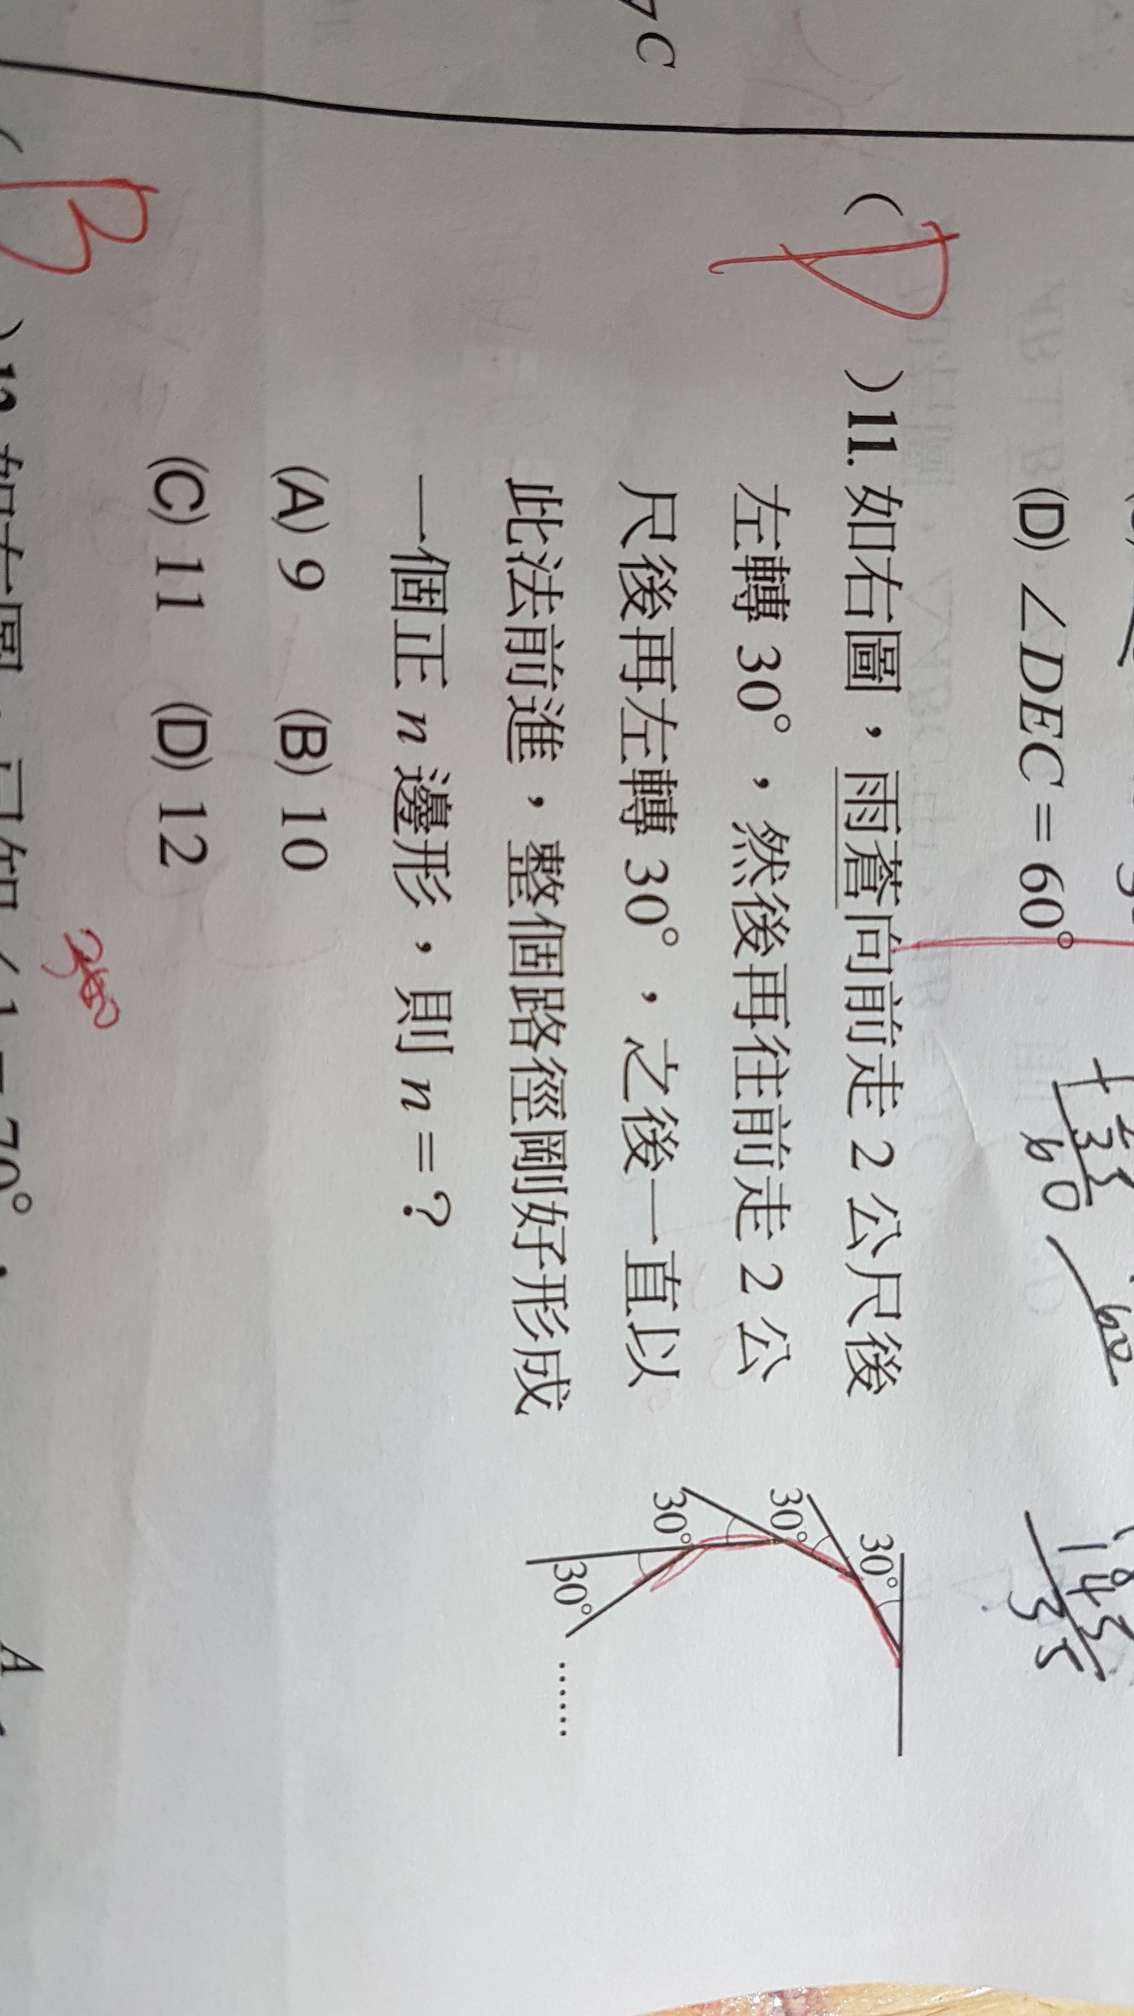 C
(D) ∠DEC = 60°
60
60
35
( D )11. 如右圖，雨蒼向前走 2 公尺後
左轉 30°，然後再往前走 2 公
尺後再左轉 30°，之後一直以
此法前進，整個路徑剛好形成
一個正 n 邊形，則 n = ?
30°
30°
30°
30°
……
(A) 9 (B) 10
(C) 11 (D) 12
360
( B )12. 如右圖，已知∠1 = 70°，
A